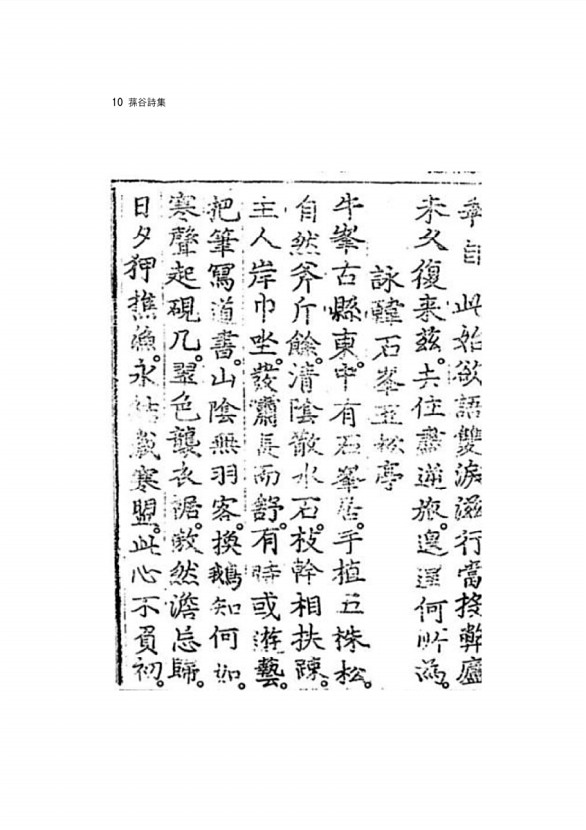 10 蓀谷詩集
辛自此始欲語雙淚滋行當投弊廬
未久復来玆去住盡逆旅邅遅何所為
詠韓石峯五松亭
牛峯古縣東中有石峯居手植五株松
自然斧斤餘清陰散水石枝幹相扶疎
主人岸巾坐發嘯長而舒有時或遊藝
把筆寫道書山陰無羽客換鵝知何如
寒聲起硯几翠色襲衣裾倣然澹忘歸
日夕狎樵漁永結歲寒盟此心不負初